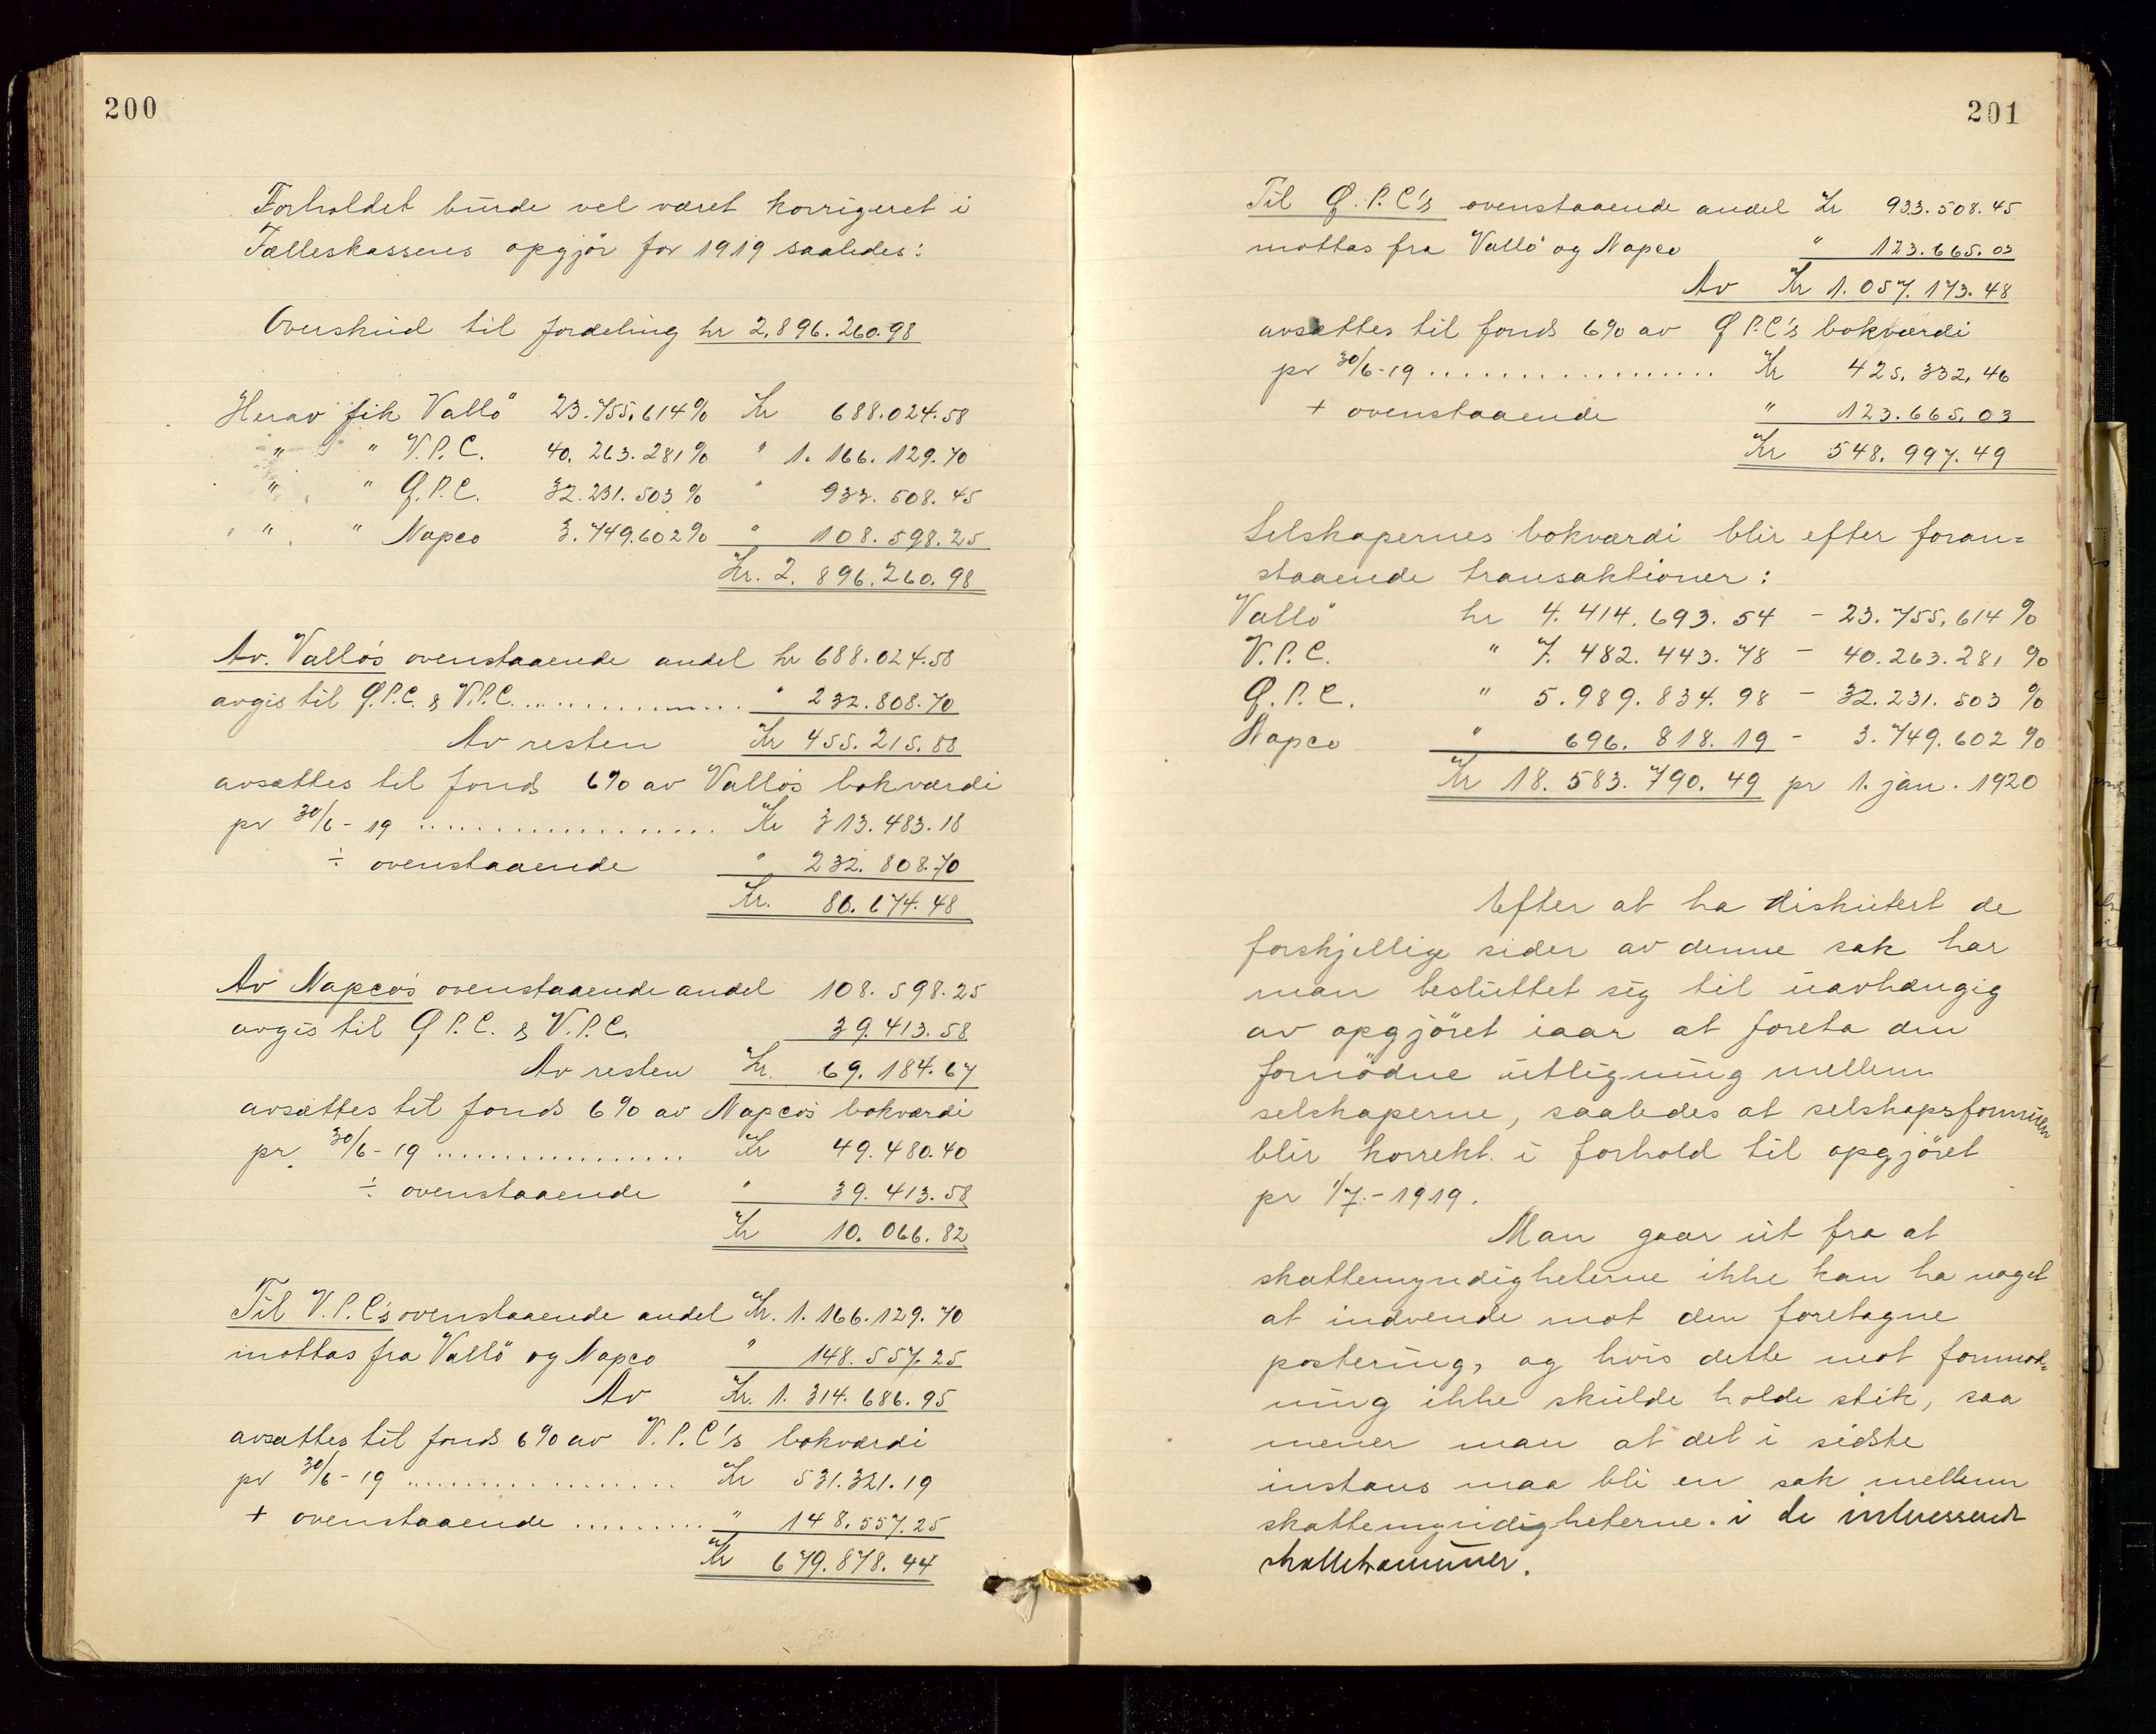 200
Forholdet burde vel været korrigeret i
Fælleskassens opgjör for 1919 saaledes:
Overskud til fordeling kr 2.896.260.98
Herav fik Vallö 23.755.614% Kr 688.024.58
" " V.P.C. 40.263.281% " 1.166.129.70
" " Ö.P.C. 32.231.503% " 933.508.45
" " Napco 3.749.602% " 108.598.25
Kr. 2.896.260.98
Av Vallö's ovenstaaende andel kr 688.024.58
avgis til Ö.P.C. & V.P.C. .............. " 232.808.70
Av resten Kr 455.215.88
avsættes til fonds 6% av Vallö's bokværdi
pr 30/6-19 .................. Kr 313.483.18
÷ ovenstaaende " 232.808.70
Kr. 80.674.48
Av Napco's ovenstaaende andel 108.598.25
avgis til Ö P.C. & V.P.C. 39.413.58
Av resten Kr. 69.184.67
avsættes til fonds 6% av Napco's bokværdi
pr. 30/6-19 ................. Kr 49.480.40
÷ ovenstaaende " 39.413.58
Kr 10.066.82
Til V.P.C's ovenstaaende andel Kr. 1.166.129.70
mottas fra Vallö og Napco " 148.557.25
Av Kr. 1.314.686.95
avsættes til fonds 6% av V.P.C's bokværdi
pr 30/6-19 ................. Kr 531.321.19
+ ovenstaaende ......... " 148.557.25
Kr 679.878.44
201
Til Ö.P.C's ovenstaaende andel Kr 933.508.45
mottas fra Vallö og Napco " 123.665.03
Av Kr 1.057.173.48
avsættes til fonds 6% av Ö P.C's bokværdi
pr 30/6-19 .................. Kr 425.332.46
+ ovenstaaende " 123.665.03
Kr 548.997.49
Selskapernes bokværdi blir efter foran=
staaende transaktioner:
Vallö kr 4.414.693.54 - 23.755,614%
V.P.C. " 7.482.443.78 - 40.263.281%
Ö.P.C. " 5.989.834.98 - 32.231.503%
Napco " 696.818.19 - 3.749.602%
Kr 18.583.790.49 pr 1. jan. 1920
Efter at ha diskutert de
forskjellige sider av denne sak har
man besluttet sig til uavhængig
av opgjöret iaar at foreta den
fornödne utligning mellem
selskaperne, saaledes at selskapsformuen
blir korrekt i forhold til opgjöret
pr 1/7.-1919.
Man gaar ut fra at
skattemyndigheterne ikke kan ha noget
at indvende mot den foretagne
postering, og hvis dette mot formod=
ning ikke skulde holde stik, saa
mener man at det i sidste
instans maa bli en sak mellem
skattemyndigheterne. i de interesserte
skattekommuner.